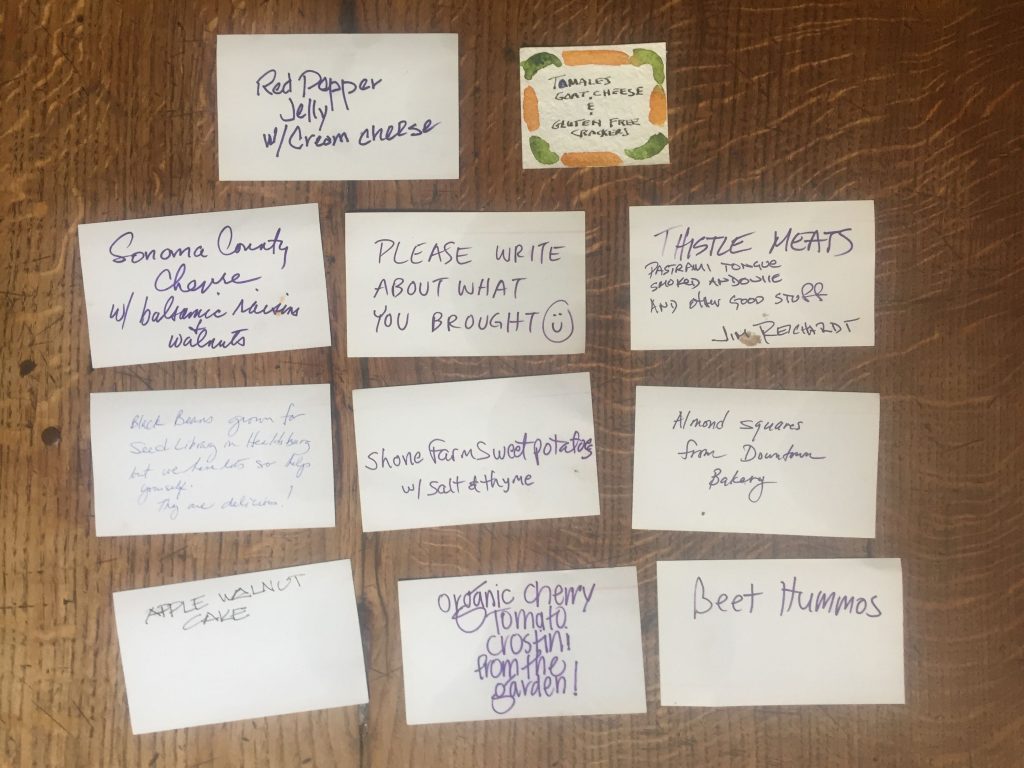 Red Pepper
Jelly
w/ Cream cheese
TOMALES
GOAT CHEESE
&
GLUTEN FREE
CRACKERS
Sonoma County
Chevre
w/ balsamic raisins
+
walnuts
PLEASE WRITE
ABOUT WHAT
YOU BROUGHT
THISTLE MEATS
PASTRAMI TONGUE
SMOKED ANDOUIE
AND OTHER GOOD STUFF
JIM REICHARDT
Black Beans grown for
Seed Library in Healdsburg
but we have lots so help
yourself.
They are delicious!
Shone Farm Sweet potatoes
w/ salt & thyme
Almond squares
from Downtown
Bakery
APPLE WALNUT
CAKE
organic cherry
Tomato
crostini
from the
garden!
Beet Hummos